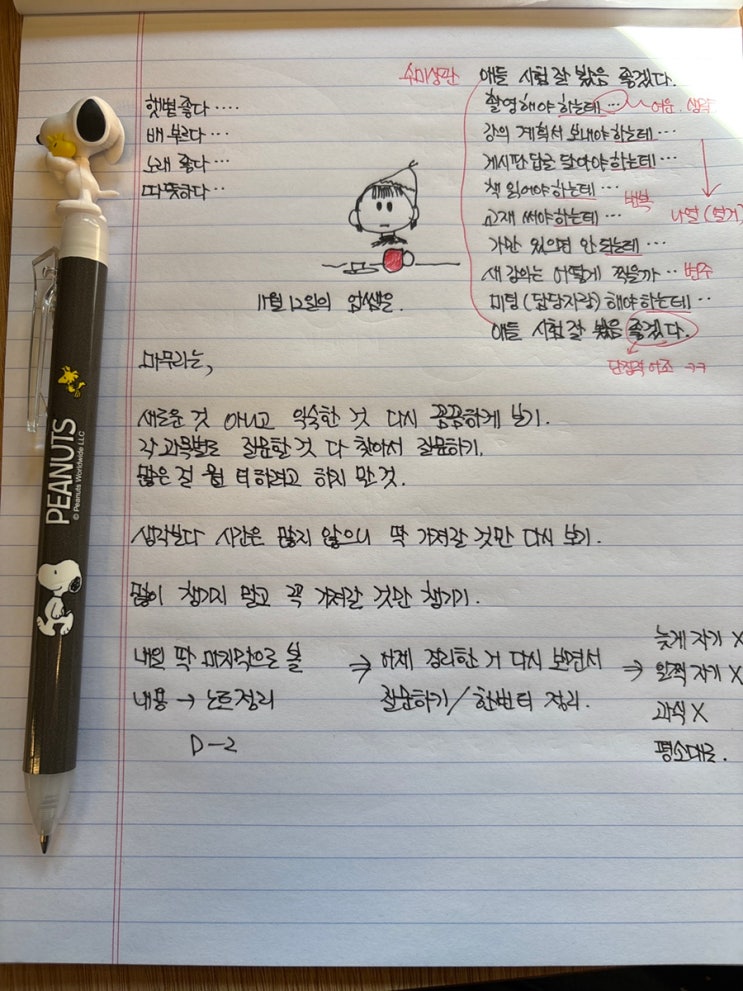 햇볕 좋다 ....
배 부르다 ...
노래 좋다 ...
따뜻하다 ...
11월 12일의 암쌤은.
수미상관
애들 시험 잘 봤음 좋겠다.
촬영해야 하는데 ... 여운. 생략
강의 계획서 보내야 하는데 ...
게시판 답글 달아야 하는데 ...
책 읽어야 하는데 ... 반복
교재 써야 하는데 ... 나열 (열거)
가만 있으면 안 되는데 ...
새 강의는 어떻게 찍을까 .. 변주
미팅 (담당자랑) 해야 하는데 ..
애들 시험 잘 봤음 좋겠다.
단정적 어조 ㅋㅋ
마무리는,
새로운 것 아니고 익숙한 것 다시 꼼꼼하게 보기.
각 과목별로 질문한 것 다 찾아서 질문하기.
많은 걸 욱여 하려고 하지 만 것.
생각보다 시간은 많지 않으니 딱 가져갈 것만 다시 보기.
많이 챙기지 말고 꼭 가져갈 것만 챙기기.
내일 딱 마지막으로 볼
내용 → 노트정리
D-2
⇒ 어제 정리한 거 다시 보면서
질문하기 / 한번 더 정리.
⇒
늦게 자기 X
일찍 자기 X
과식 X
평소대로.
PEANUTS
© Peanuts Worldwide LLC